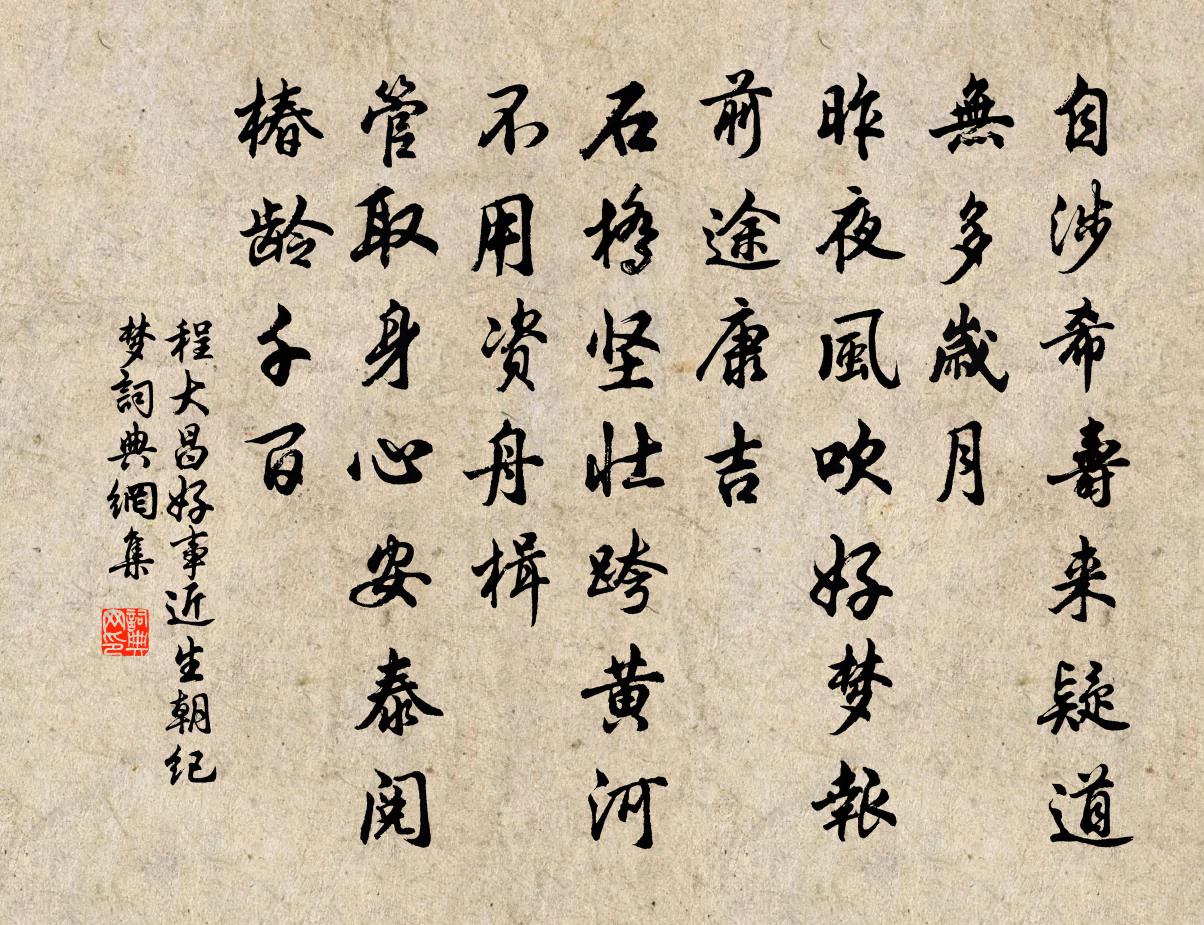 自涉希壽来疑道
無多歲月
昨夜風吹好梦報
前途康吉
石橋坚壮跨黄河
不用资舟楫
管取身心安泰阅
椿龄千百
程大昌好事近生朝纪
梦詞典網集
詞典网印